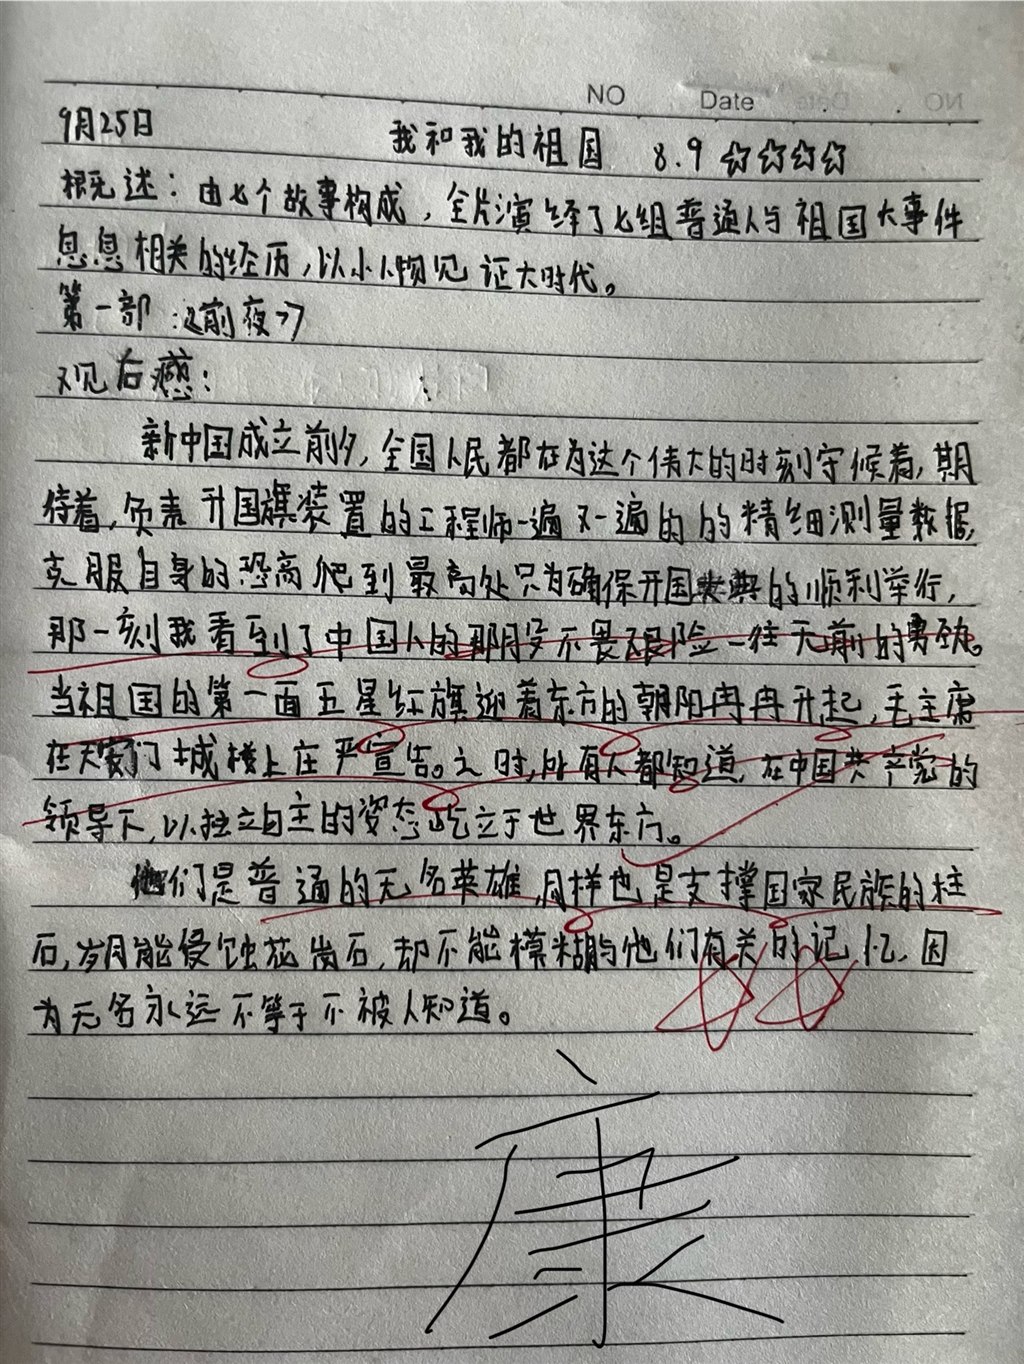 NO Date
9月25日 我和我的祖国 8.9 ☆☆☆☆
概述：由七个故事构成，全片演绎了七组普通人与祖国大事件
息息相关的经历，以小人物见证大时代。
第一部：《前夜》
观后感：
新中国成立前夕，全国人民都在为这个伟大的时刻守候着，期
待着，负责升国旗装置的工程师一遍又一遍的的精细测量数据，
克服自身的恐高爬到最高处只为确保开国大典的顺利举行，
那一刻我看到了中国人的那月岁不畏艰险一往无前的勇劲。
当祖国的第一面五星红旗迎着东方的朝阳冉冉升起，毛主席
在天安门城楼上庄严宣告。之时，所有人都知道，在中国共产党的
领导下，以独立自主的姿态屹立于世界东方。
他们是普通的无名英雄，同样也是支撑国家民族的柱
石，岁月能侵蚀花岗石，却不能模糊的他们有关的记忆，因
为无名永远不等于不被人知道。
康